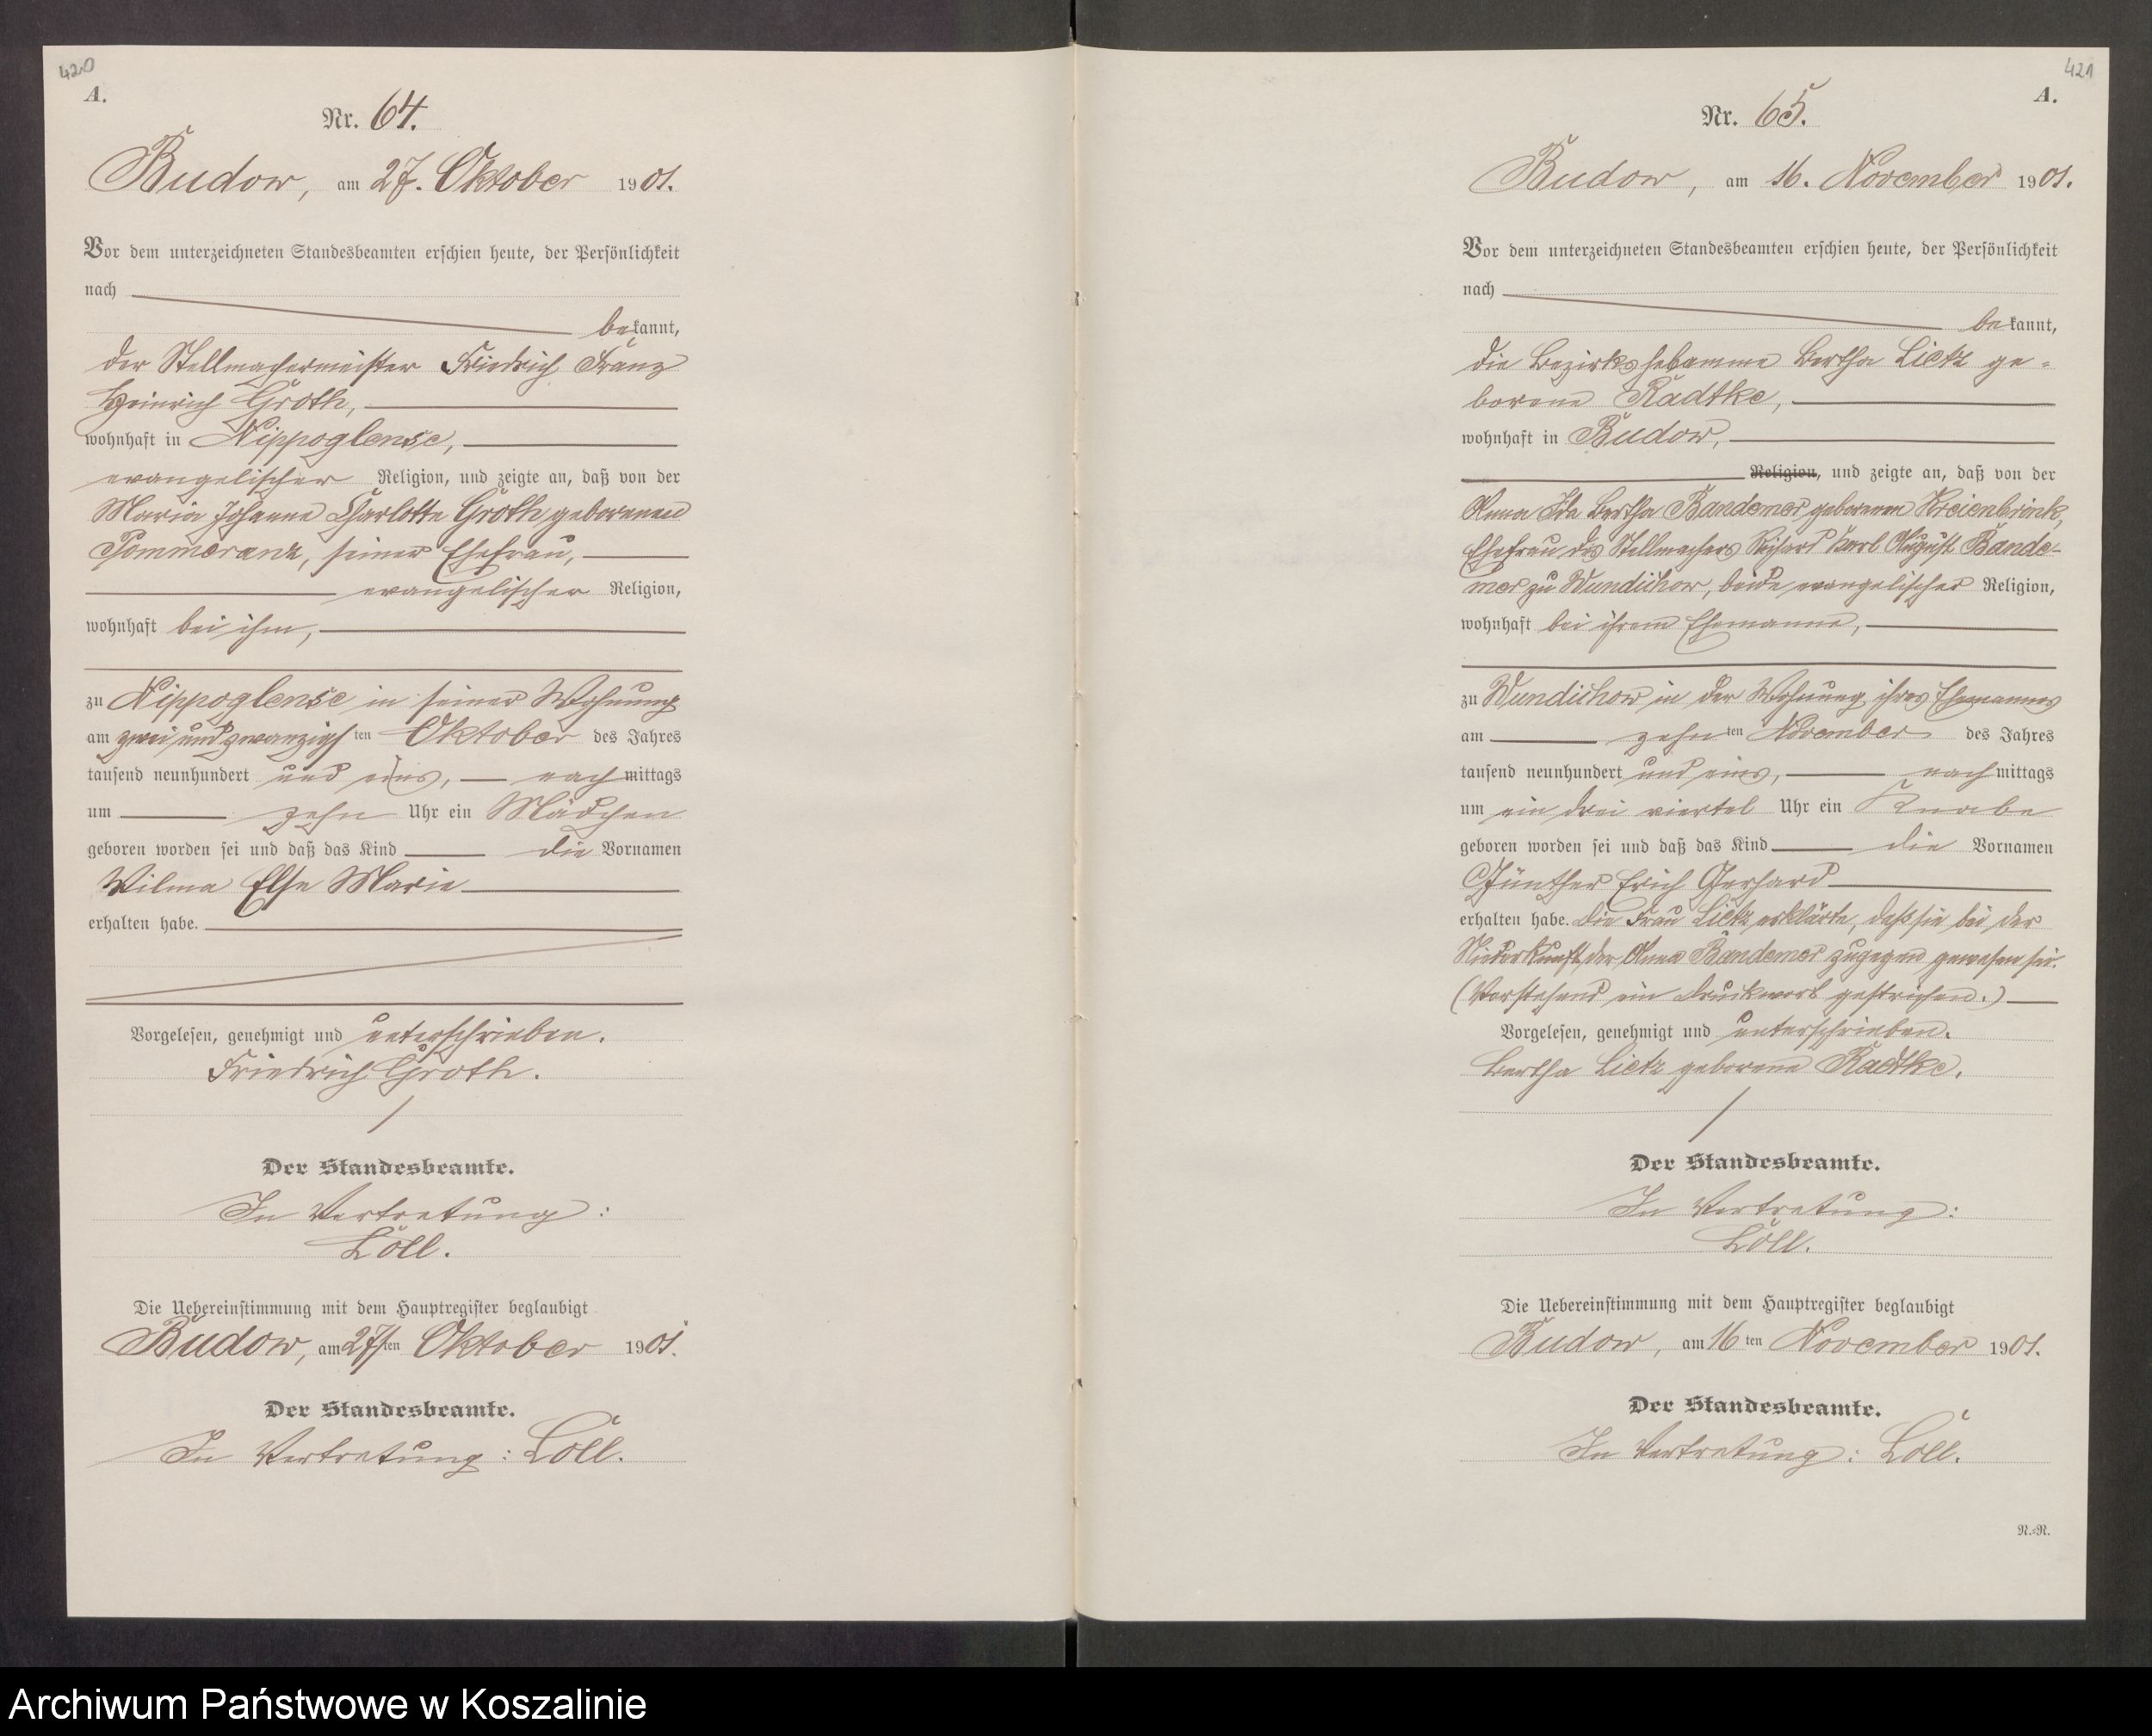 420
A.
Nr. 64.
Budow, am 27. Oktober 1901.
Vor dem unterzeichneten Standesbeamten erschien heute, der Persönlichkeit
nach
bekannt,
der Stellmachermeister Friedrich Franz
Heinrich Groth,
wohnhaft in Nippoglense,
evangelischer Religion, und zeigte an, daß von der
Maria Johanne Charlotte Groth geborenen
Pommeranz, seiner Ehefrau,
evangelischer Religion,
wohnhaft bei ihm,
zu Nippoglense in seiner Wohnung
am zwei und zwanzigsten Oktober des Jahres
tausend neunhundert und eins, nachmittags
um zehn Uhr ein Mädchen
geboren worden sei und daß das Kind die Vornamen
Wilma Else Marie
erhalten habe.
Vorgelesen, genehmigt und unterschrieben.
Friedrich Groth.
Der Standesbeamte.
In Vertretung:
Löll.
Die Uebereinstimmung mit dem Hauptregister beglaubigt
Budow, am 27ten Oktober 1901.
Der Standesbeamte.
In Vertretung: Löll.
421
A.
Nr. 65.
Budow, am 16. November 1901.
Vor dem unterzeichneten Standesbeamten erschien heute, der Persönlichkeit
nach
bekannt,
die Bezirkshebamme Bertha Lietz ge-
borene Radtke,
wohnhaft in Budow,
Religion, und zeigte an, daß von der
Anna Ida Bertha Bandemer geborenen Kreienbrink,
Ehefrau des Stellmachers Richard Karl August Bande-
mer zu Wundichow, beide evangelischer Religion,
wohnhaft bei ihrem Ehemanne,
zu Wundichow in der Wohnung ihres Ehemannes
am zehnten November des Jahres
tausend neunhundert und eins, nachmittags
um ein drei viertel Uhr ein Knabe
geboren worden sei und daß das Kind die Vornamen
Günther Erich Gerhard
erhalten habe. Die Frau Lietz erklärte, daß sie bei der
Niederkunft der Anna Bandemer zugegen gewesen sei.
(Vorstehend ein Druckwort gestrichen.)
Vorgelesen, genehmigt und unterschrieben.
Bertha Lietz geborene Radtke.
Der Standesbeamte.
In Vertretung:
Löll.
Die Uebereinstimmung mit dem Hauptregister beglaubigt
Budow, am 16ten November 1901.
Der Standesbeamte.
In Vertretung: Löll.
N.=N.
Archiwum Państwowe w Koszalinie